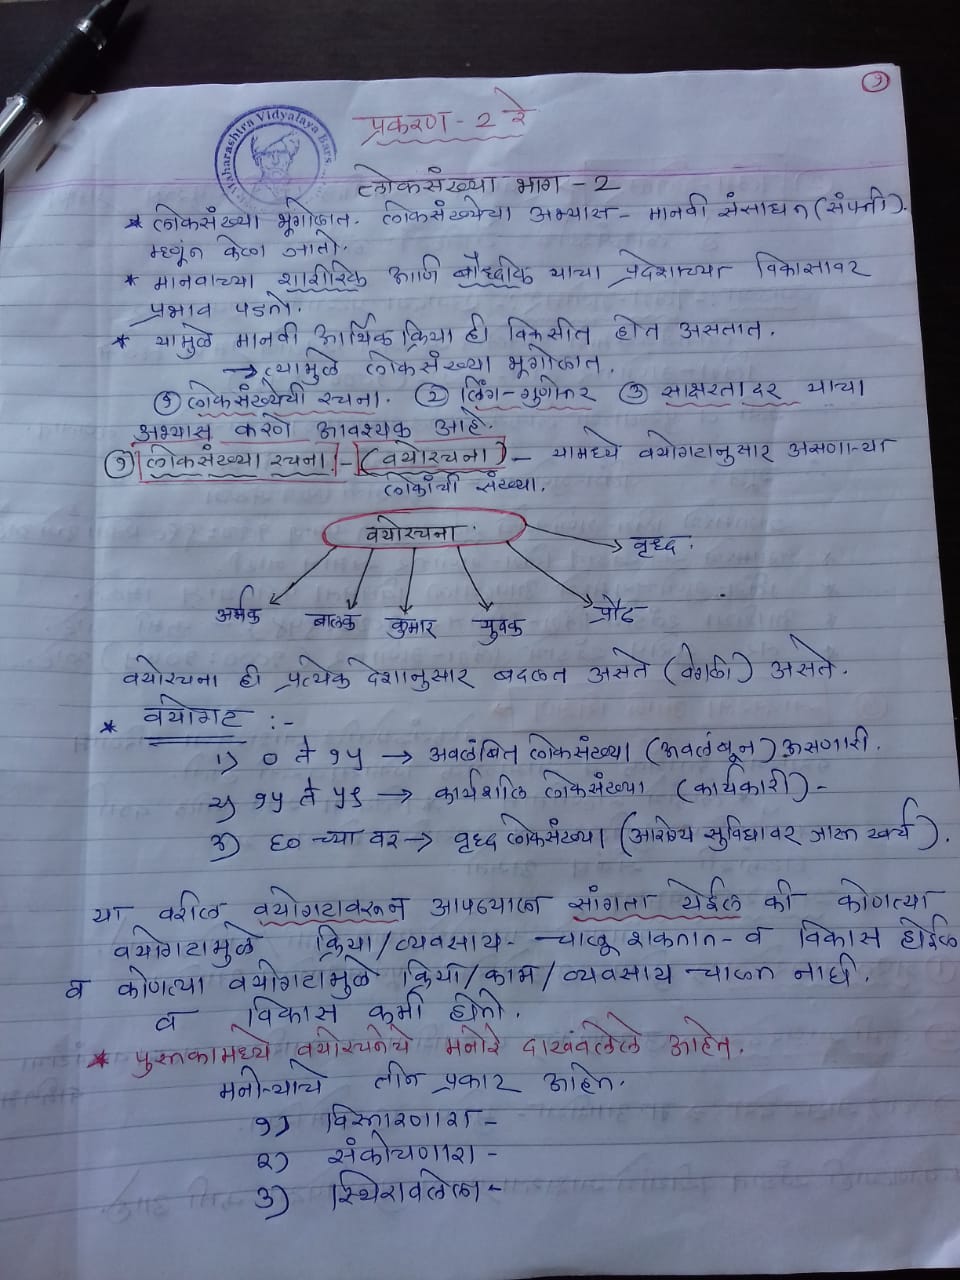 १
Maharashtra Vidyalaya Bars
प्रकरण - 2 रे
लोकसंख्या भाग - 2
* लोकसंख्या भूगोलात. लोकसंख्येचा अभ्यास - मानवी संसाधन (संपत्ती).
म्हणून केला जातो.
* मानवाच्या शारीरिक आणि बौद्धीक याचा प्रदेशाच्या विकासावर
प्रभाव पडतो.
* यामुळे मानवी आर्थिक क्रिया ही विकसीत होत असतात.
→ त्यामुळे लोकसंख्या भूगोलात.
① लोकसंख्येची रचना. ② लिंग-गुणोत्तर ③ साक्षरता दर याचा
अभ्यास करणे आवश्यक आहे.
① लोकसंख्या रचना - (वयोरचना) - यामध्ये वयोगटानुसार असणा-या
लोकांची संख्या.
वयोरचना.
वृध्द.
अर्भक बालक कुमार युवक प्रौढ
वयोरचना ही प्रत्येक देशानुसार बदलत असते (वेगळी) असते.
* वयोगट :-
१) ० ते १५ → अवलंबित लोकसंख्या (अवलंबून) असणारी.
२) १५ ते ५९ → कार्यशील लोकसंख्या (कार्यकारी) -
३) ६० च्या वर → वृध्द लोकसंख्या (आरोग्य सुविधावर जास्त खर्च).
या वरील वयोगटावरून आपण्याल सांगता येईल की कोणत्या
वयोगटामुळे क्रिया/व्यवसाय - चालू शकतात - व विकास होईल
व कोणत्या वयोगटामुळे क्रिया/काम/व्यवसाय चालत नाही.
व विकास कमी होतो.
* पुस्तकामध्ये वयोरचनेचे मनोरे दाखवलेले आहेत.
मनो-याचे तीन प्रकार आहेत.
१) विस्तारणारा -
२) संकोचणारा -
३) स्थिरावलेला -